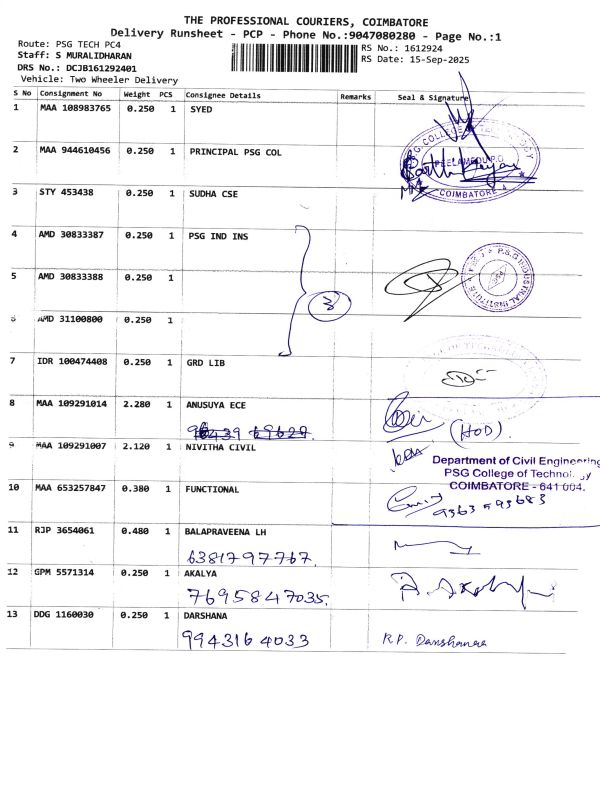 THE PROFESSIONAL COURIERS, COIMBATORE
Delivery Runsheet - PCP - Phone No.:9047080280 - Page No.:1
Route: PSG TECH PC4
RS No.: 1612924
Staff: S MURALIDHARAN
RS Date: 15-Sep-2025
DRS No.: DCJB161292401
Vehicle: Two Wheeler Delivery
S No Consignment No Weight PCS Consignee Details Remarks Seal & Signature
1 MAA 108983765 0.250 1 SYED
2 MAA 944610456 0.250 1 PRINCIPAL PSG COL
PEELAMEDU P.O.
COIMBATORE
3 STY 453438 0.250 1 SUDHA CSE
4 AMD 30833387 0.250 1 PSG IND INS
P.S.G INDUSTRIAL INSTITUTE
5 AMD 30833388 0.250 1
3
6 AMD 31100800 0.250 1
7 IDR 100474408 0.250 1 GRD LIB
8 MAA 109291014 2.280 1 ANUSUYA ECE
(HOD).
9 MAA 109291007 2.120 1 NIVITHA CIVIL
Department of Civil Engineering
PSG College of Technology
COIMBATORE - 641 004.
10 MAA 653257847 0.380 1 FUNCTIONAL
9363593683
11 RJP 3654061 0.480 1 BALAPRAVEENA LH
6381797767.
12 GPM 5571314 0.250 1 AKALYA
7695847035.
13 DDG 1160030 0.250 1 DARSHANA
9943164033 R.P. Darshanaa